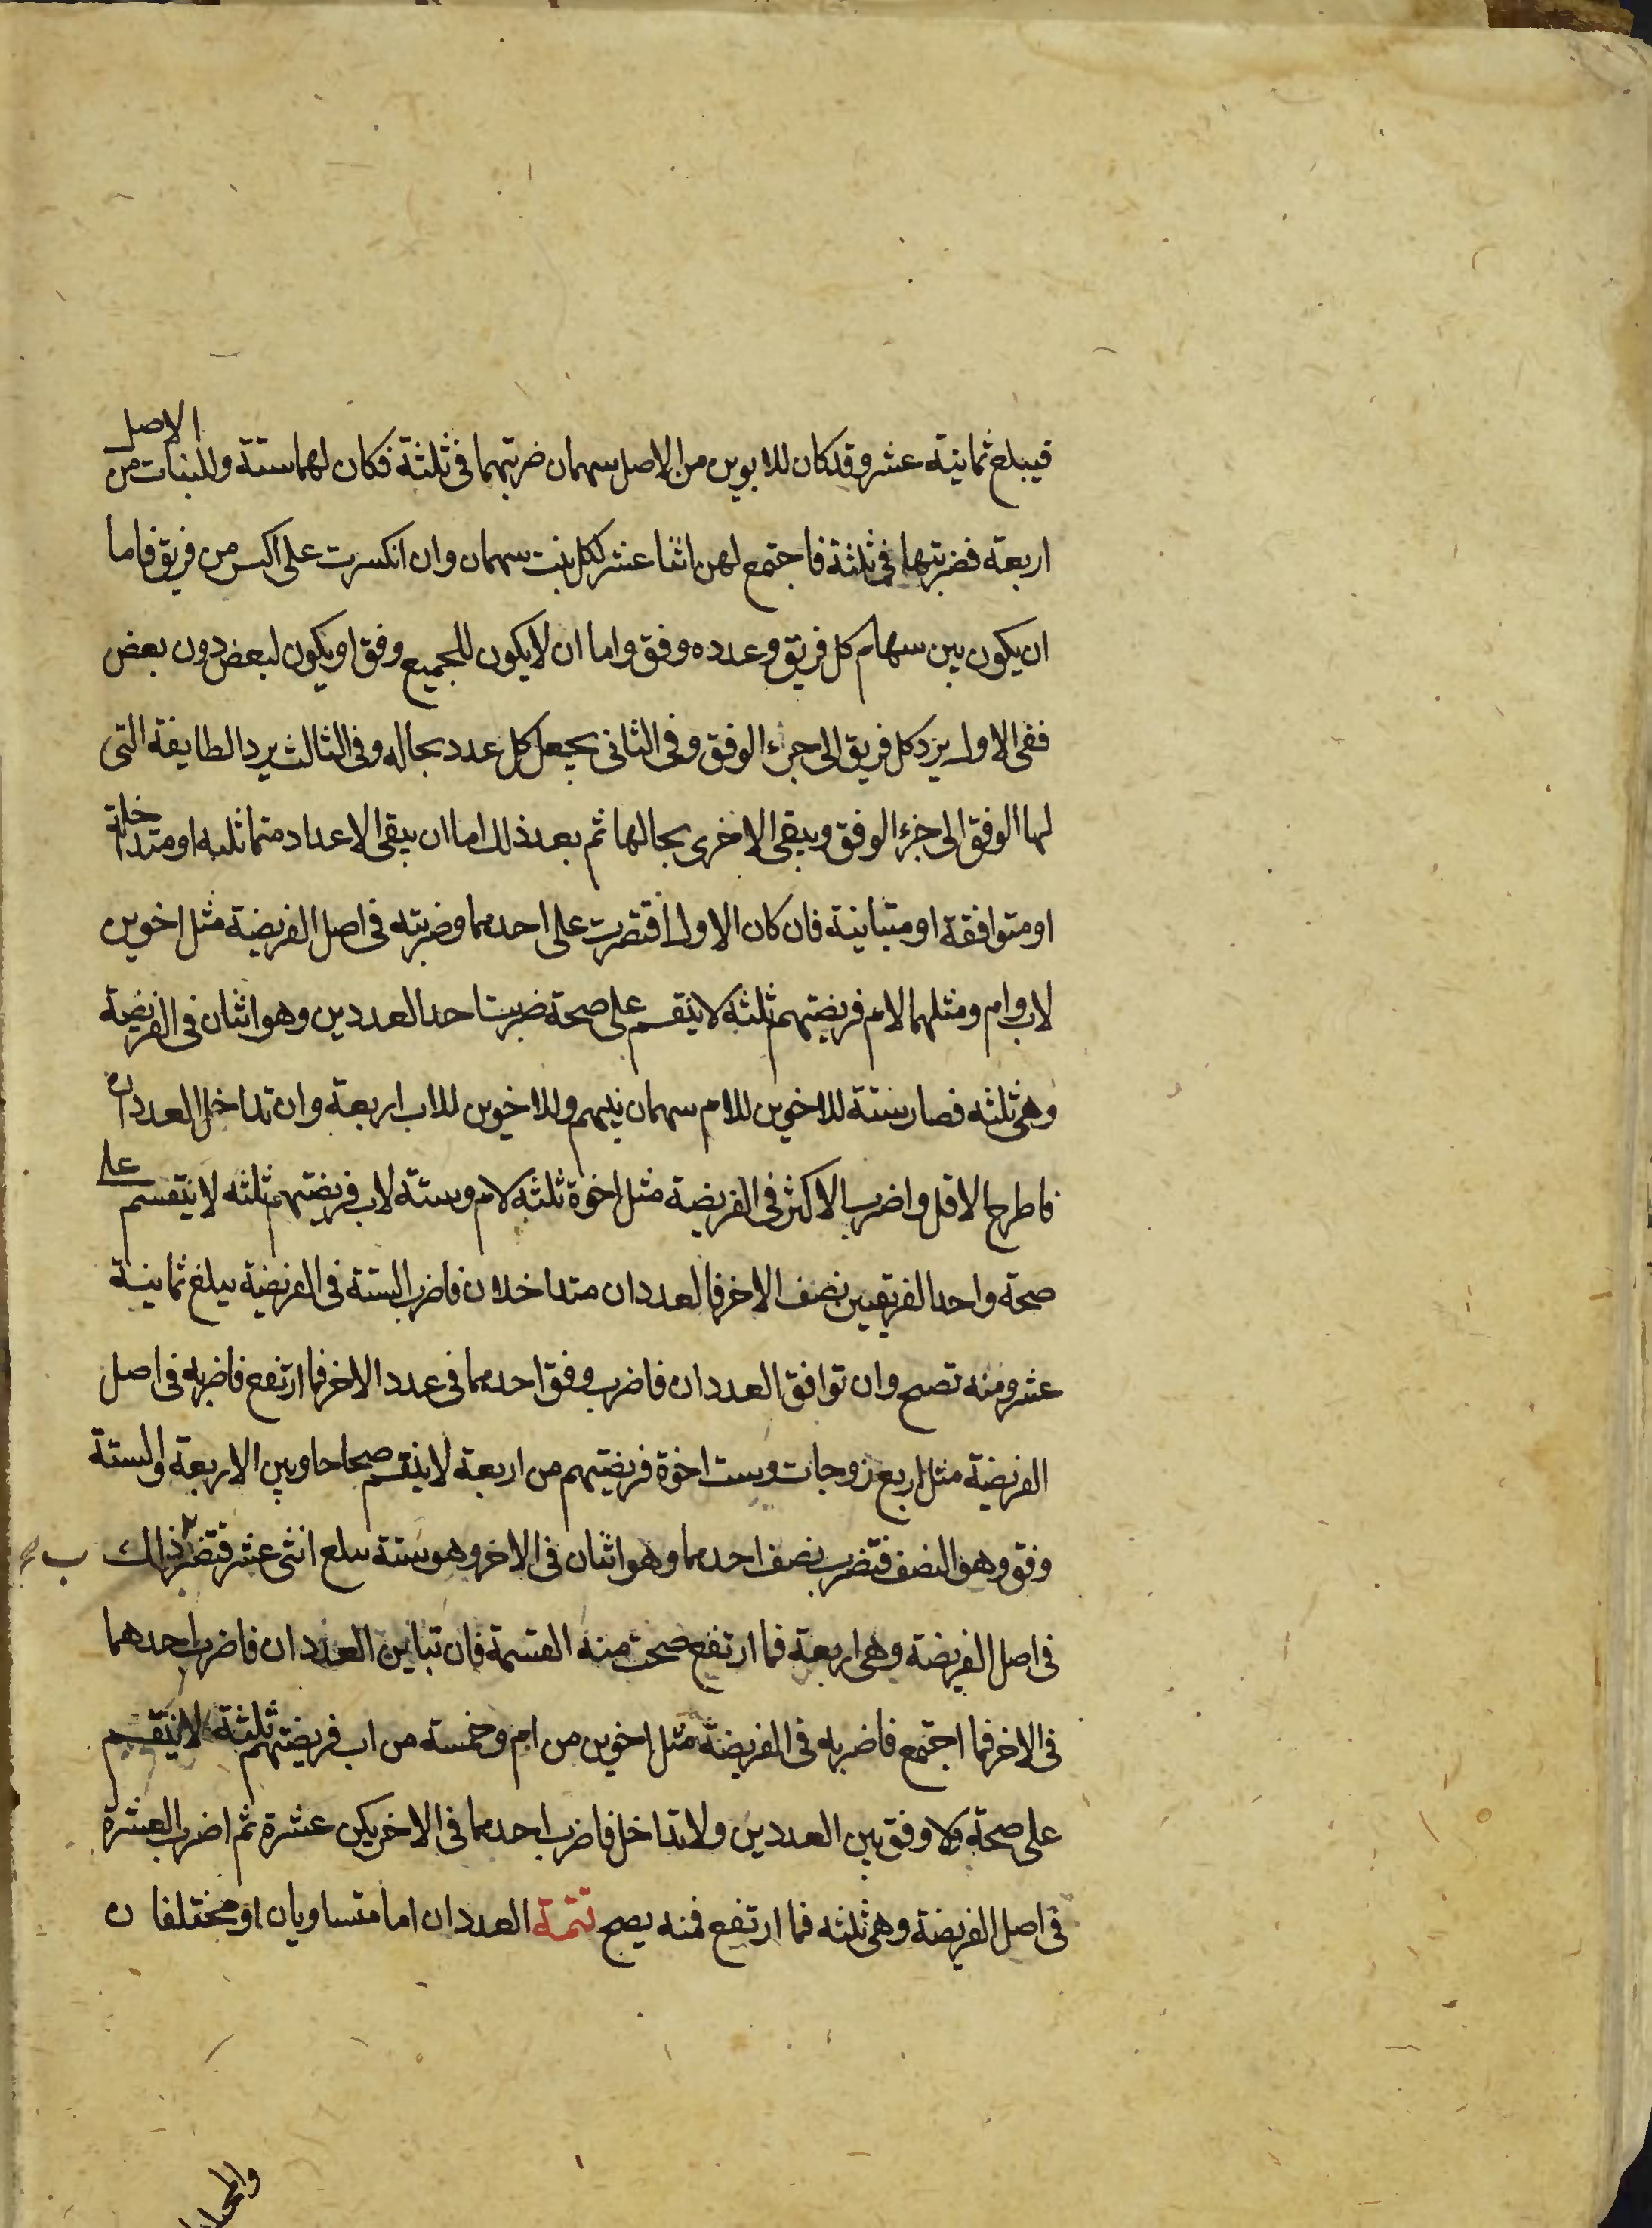 فيبلغ ثمانية عشر وقد كان للابوين من الاصل سهمان ضربتهما في ثلثة فكان لهما ستة وللبنات من الاصل
اربعة فضربتها في ثلثة فاجتمع لهن اثنا عشر لكل بنت سهمان وان انكسرت على اكثر من فريق فاما
ان يكون بين سهام كل فريق وعدده وفق واما ان لا يكون للجميع وفق او يكون لبعض دون بعض
ففي الاول يرد كل فريق الى جزء الوفق وفي الثاني يجعل كل عدد بحاله وفي الثالث يرد الطايفة التي
لها الوفق الى جزء الوفق ويبقى الاخرى بحالها ثم بعد ذلك اما ان يبقى الاعداد متماثلة او متداخلة
او متوافقة او متباينة فان كان الاول اقتصرت على احدهما وضربته في اصل الفريضة مثل اخوين
لاب وام ومثلهما لام فريضتهم ثلثة لا ينقسم على صحة ضربت احد العددين وهو اثنان في الفريضة
وهي ثلثه فصار ستة للاخوين للام سهمان بينهم وللاخوين للاب اربعة وان تداخل العددان
فاطرح الاقل واضرب الاكثر في الفريضة مثل اخوة ثلثة لام وستة لاب فريضتهم ثلثه لا ينقسم على
صحة واحد الفريقين نصف الاخر فالعددان متداخلان فاضرب الستة في الفريضة يبلغ ثمانية
عشر ومنه تصح وان توافق العددان فاضرب وفق احدهما في عدد الاخر فما ارتفع فاضربه في اصل
الفريضة مثل اربع زوجات وست اخوة فريضتهم من اربعة لا ينقسم صحاحا وبين الاربعة والستة
وفق وهو النصف فتضرب نصف احدهما وهو اثنان في الاخر وهو ستة يبلغ اثنى عشر فتضرب ذلك
في اصل الفريضة وهي اربعة فما ارتفع صحت منه القسمة فان تباين العددان فاضرب احدهما
في الاخر فما اجتمع فاضربه في الفريضة مثل اخوين من ام وخمسة من اب فريضتهم ثلثة لا ينقسم
على صحة ولا وفق بين العددين ولا تداخل فاضرب احدهما في الاخر يكن عشرة ثم اضرب العشرة
في اصل الفريضة وهي ثلثه فما ارتفع فمنه يصح تتمة العددان اما متساويان او مختلفان